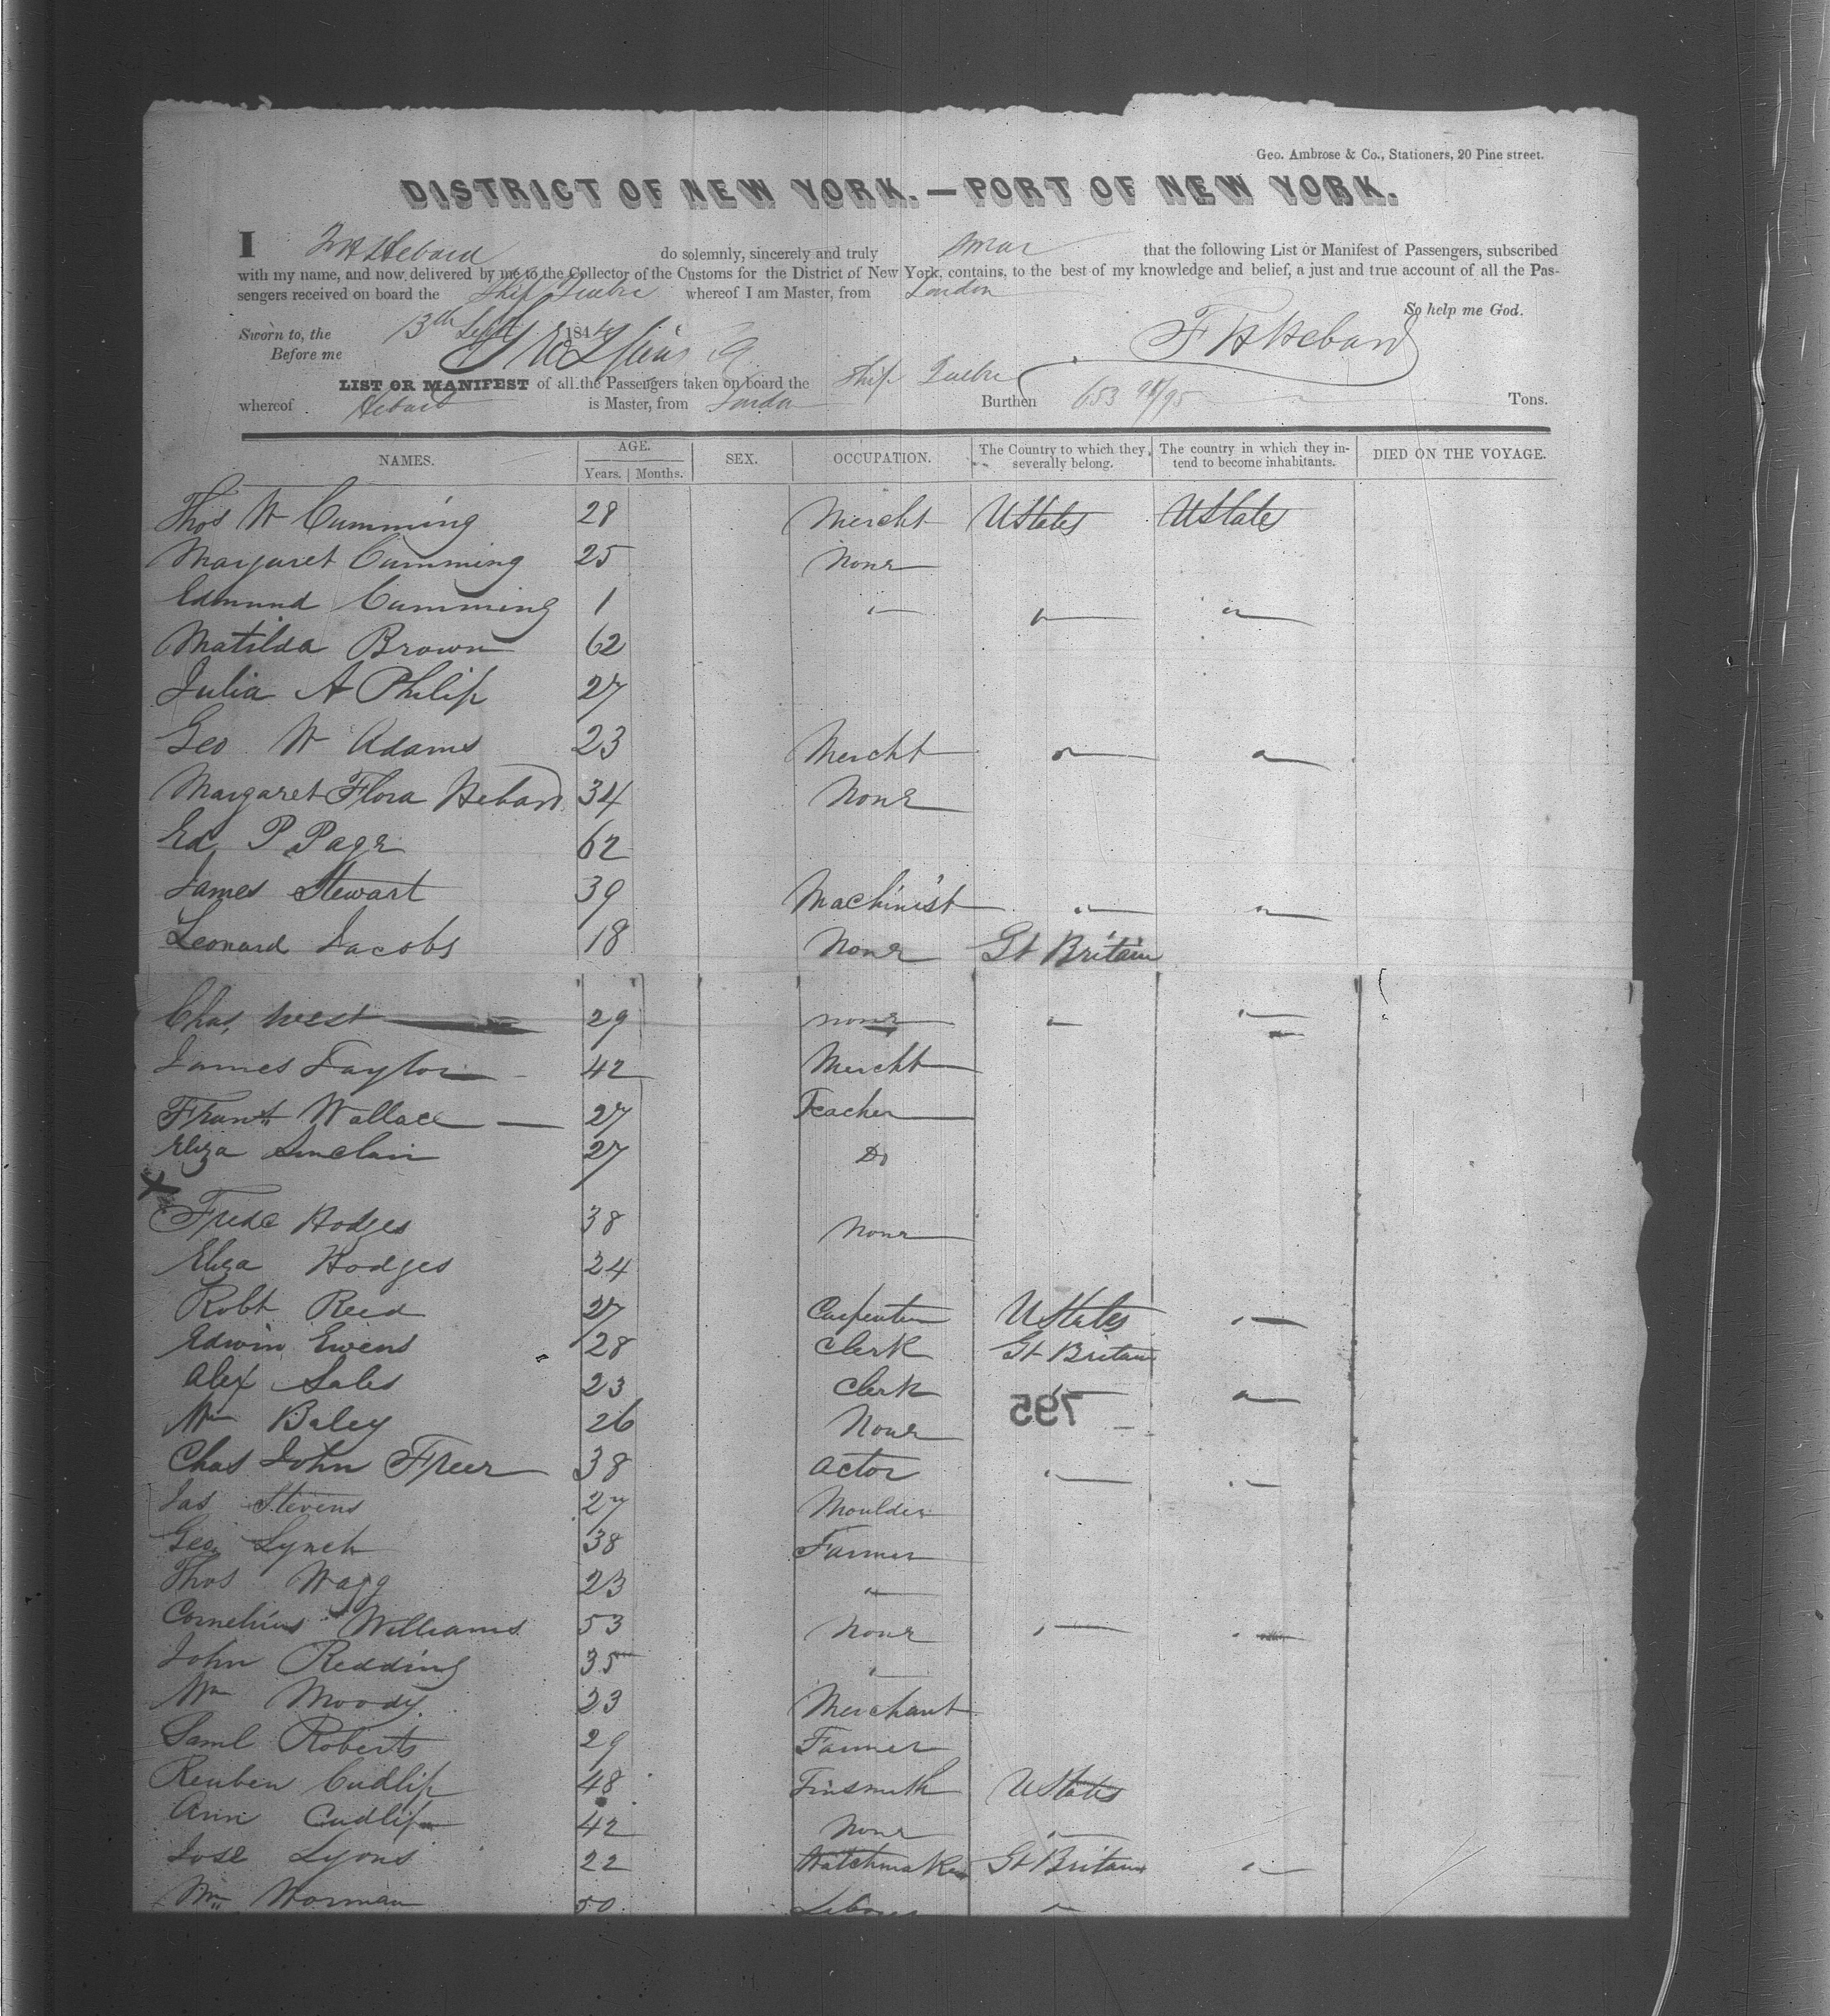 Geo. Ambrose & Co., Stationers, 20 Pine street.
DISTRICT OF NEW YORK.—PORT OF NEW YORK.
I F H Hebard do solemnly, sincerely and truly swear that the following List or Manifest of Passengers, subscribed
with my name, and now delivered by me to the Collector of the Customs for the District of New York, contains, to the best of my knowledge and belief, a just and true account of all the Pas-
sengers received on board the Ship Quebec whereof I am Master, from London
So help me God.
Sworn to, the 13th Sept 184
Before me
F H Hebard
LIST OR MANIFEST of all the Passengers taken on board the Ship Quebec
whereof Hebard is Master, from London Burthen 653 94/95 Tons.
NAMES. AGE. Years. Months. SEX. OCCUPATION. The Country to which they severally belong. The country in which they intend to become inhabitants. DIED ON THE VOYAGE.
Thos W Cumming 28 Mercht UStates UStates
Margaret Cumming 25 None
Edmund Cumming 1 " " "
Matilda Brown 62
Julia A Philip 27
Geo W Adams 23 Mercht " "
Margaret Flora Hebard 34 None
Ed P Page 62
James Stewart 39 Machinist " "
Leonard Jacobs 18 None Gt Britain
Chas West 29 none " "
James Taylor 42 Mercht
Wallace 27 Teacher
Eliza Sinclair 27 Do
X
Fredc Hodges 38 None
Eliza Hodges 24
Robt Reed 27 Carpenter UStates "
Edwin Ewens 28 Clerk Gt Britain
Alex Sales 23 Clerk " "
795
Wm Baley 26 None
Chas John Freer 38 Actor " "
Jas Stevens 27 Moulder
Geo Lynch 38 Farmer
Thos Wagg 23 "
Cornelius Williams 53 None " "
John Redding 35 "
Wm Moody 23 Merchant
Saml Roberts 29 Farmer
Reuben Cudlip 48 Tinsmith UStates
Ann Cudlip 42 None "
Jose Lyons 22 Watchmaker Gt Britain "
Wm Worman 50 Labourer "